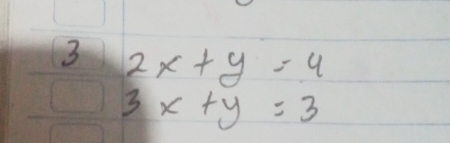 3 2x + y = 4
3x + y = 3